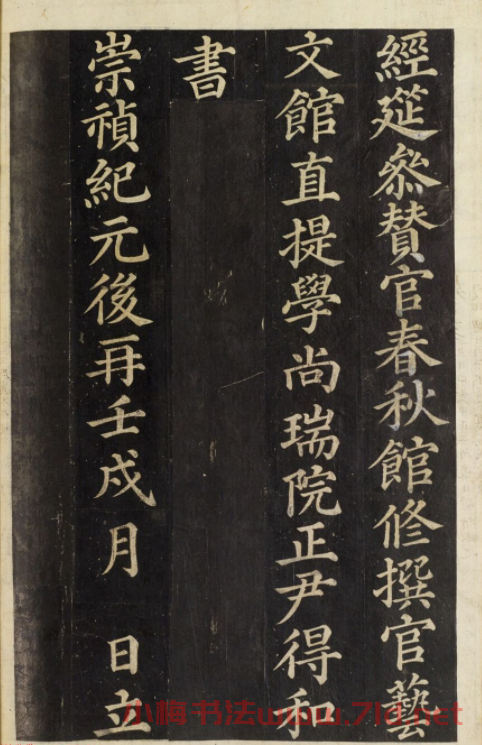 經筵叅贊官春秋館修撰官藝
文館直提學尚瑞院正尹得和
書
崇禎紀元後再壬戌月 日立
小梅书法www.7ld.net